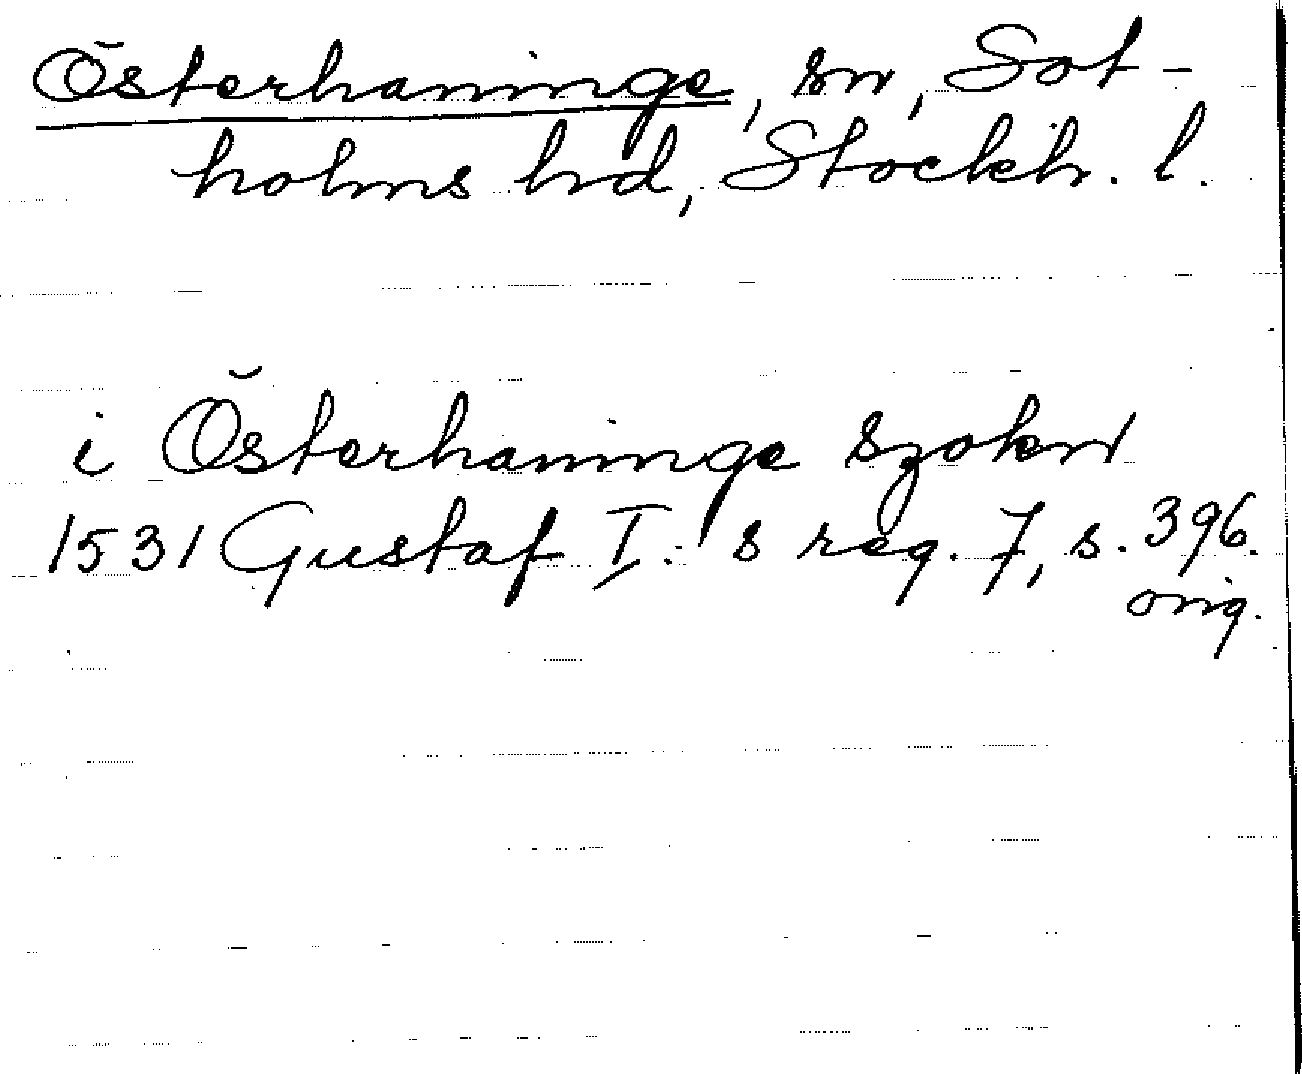 Österhaninge, sn, Sot-
holms hd, Stockh. l.
i Österhaninge szokn
1531 Gustaf I.s reg. 7, s. 396.
orig.